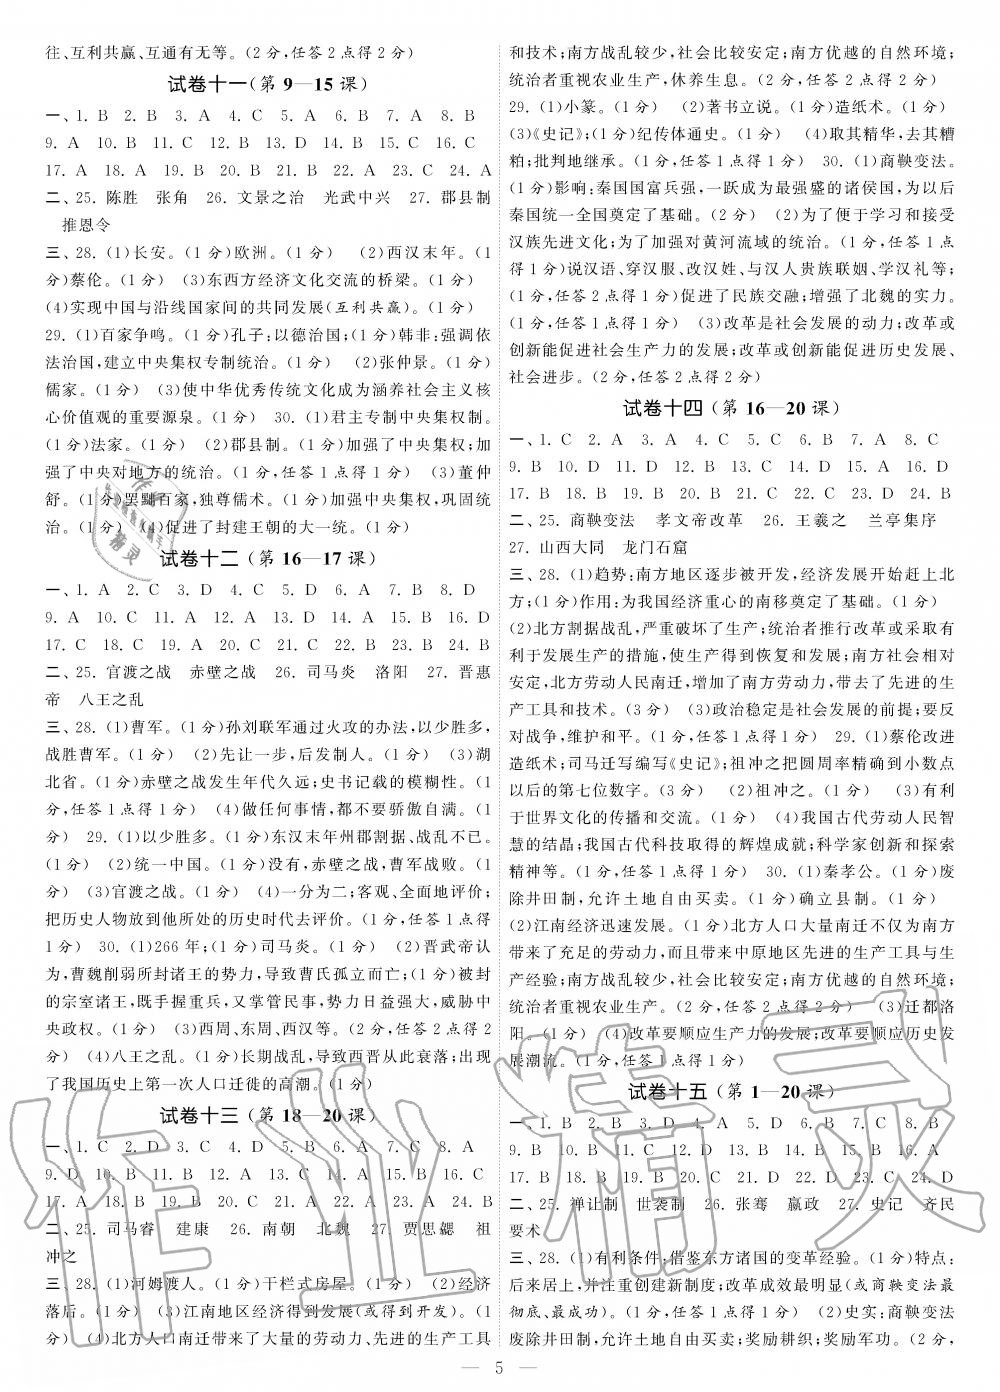 往、互利共赢、互通有无等。(2分,任答2点得2分)
试卷十一(第9—15课)
一、1. B  2. B  3. A  4. C  5. A  6. B  7. A  8. B
9. A  10. B  11. C  12. B  13. D  14. B  15. C  16. C
17. A  18. A  19. B  20. B  21. A  22. B  23. C  24. A
二、25. 陈胜  张角  26. 文景之治  光武中兴  27. 郡县制
推恩令
三、28. (1)长安。(1分)欧洲。(1分)  (2)西汉末年。(1
分)蔡伦。(1分)  (3)东西方经济文化交流的桥梁。(1分)
(4)实现中国与沿线国家间的共同发展(互利共赢)。(1分)
29. (1)百家争鸣。(1分)孔子:以德治国;(1分)韩非:强调依
法治国,建立中央集权专制统治。(1分)  (2)张仲景。(1分)
儒家。(1分)  (3)使中华优秀传统文化成为涵养社会主义核
心价值观的重要源泉。(1分)  30. (1)君主专制中央集权制。
(1分)法家。(1分)  (2)郡县制。(1分)加强了中央集权;加
强了中央对地方的统治。(1分,任答1点得1分)  (3)董仲
舒。(1分)罢黜百家,独尊儒术。(1分)加强中央集权,巩固统
治。(1分)  (4)促进了封建王朝的大一统。(1分)
试卷十二(第16—17课)
一、1. A  2. C  3. D  4. C  5. D  6. A  7. B  8. D
9. A  10. C  11. A  12. D  13. B  14. A  15. D  16. B
17. C  18. C  19. A  20. D  21. C  22. B  23. B  24. B
二、25. 官渡之战  赤壁之战  26. 司马炎  洛阳  27. 晋惠
帝  八王之乱
三、28. (1)曹军。(1分)孙刘联军通过火攻的办法,以少胜多,
战胜曹军。(1分)  (2)先让一步,后发制人。(1分)  (3)湖
北省。(1分)赤壁之战发生年代久远;史书记载的模糊性。(1
分,任答1点得1分)  (4)做任何事情,都不要骄傲自满。(1
分)  29. (1)以少胜多。(1分)东汉末年州郡割据、战乱不已。
(1分)  (2)统一中国。(1分)没有,赤壁之战,曹军战败。(1分)
(3)官渡之战。(1分)  (4)一分为二;客观、全面地评价;
把历史人物放到他所处的历史时代去评价。(1分,任答1点得
1分)  30. (1)266年;(1分)司马炎。(1分)  (2)晋武帝认
为,曹魏削弱所封诸王的势力,导致曹氏孤立而亡;(1分)被封
的宗室诸王,既手握重兵,又掌管民事,势力日益强大,威胁中
央政权。(1分)  (3)西周、东周、西汉等。(2分,任答2点得2
分)  (4)八王之乱。(1分)长期战乱,导致西晋从此衰落;出现
了我国历史上第一次人口迁徙的高潮。(1分)
试卷十三(第18—20课)
一、1. C  2. D  3. C  4. D  5. B  6. A  7. C  8. A
9. D  10. D  11. B  12. A  13. C  14. A  15. B  16. C
17. A  18. B  19. B  20. C  21. A  22. A  23. A  24. B
二、25. 司马睿  建康  26. 南朝  北魏  27. 贾思勰  祖
冲之
三、28. (1)河姆渡人。(1分)干栏式房屋。(1分)  (2)经济
落后。(1分)  (3)江南地区经济得到发展(或得到开发)。(1
分)  (4)北方人口南迁带来了大量的劳动力、先进的生产工具
和技术;南方战乱较少,社会比较安定;南方优越的自然环境;
统治者重视农业生产,休养生息。(2分,任答2点得2分)
29. (1)小篆。(1分)  (2)著书立说。(1分)造纸术。(1分)
(3)《史记》;(1分)纪传体通史。(1分)  (4)取其精华,去其糟
粕;批判地继承。(1分,任答1点得1分)  30. (1)商鞅变法。
(1分)影响:秦国国富兵强,一跃成为最强盛的诸侯国,为以后
秦国统一全国奠定了基础。(2分)  (2)为了便于学习和接受
汉族先进文化;为了加强对黄河流域的统治。(1分,任答1点得
1分)说汉语、穿汉服、改汉姓、与汉人贵族联姻、学汉礼等;
(1分,任答1点得1分)促进了民族交融;增强了北魏的实力。
(1分,任答1点得1分)  (3)改革是社会发展的动力;改革或
创新能促进社会生产力的发展;改革或创新能促进历史发展、
社会进步。(2分,任答2点得2分)
试卷十四(第16—20课)
一、1. C  2. A  3. A  4. C  5. C  6. B  7. A  8. C
9. B  10. D  11. D  12. C  13. D  14. A  15. A  16. D
17. B  18. B  19. B  20. A  21. C  22. C  23. D  24. B
二、25. 商鞅变法  孝文帝改革  26. 王羲之  兰亭集序
27. 山西大同  龙门石窟
三、28. (1)趋势:南方地区逐步被开发,经济发展开始赶上北
方;(1分)作用:为我国经济重心的南移奠定了基础。(1分)
(2)北方割据战乱,严重破坏了生产;统治者推行改革或采取有
利于发展生产的措施,使生产得到恢复和发展;南方社会相对
安定,北方劳动人民南迁,增加了南方劳动力,带去了先进的生
产工具和技术。(3分)  (3)政治稳定是社会发展的前提;要反
对战争,维护和平。(1分,任答1点得1分)  29. (1)蔡伦改进
造纸术;司马迁写编写《史记》;祖冲之把圆周率精确到小数点
以后的第七位数字。(3分)  (2)祖冲之。(1分)  (3)有利
于世界文化的传播和交流。(1分)  (4)我国古代劳动人民智
慧的结晶;我国古代科技取得的辉煌成就;科学家创新和探索
精神等。(1分,任答1点得1分)  30. (1)秦孝公。(1分)废
除井田制,允许土地自由买卖。(1分)确立县制。(1分)
(2)江南经济迅速发展。(1分)北方人口大量南迁不仅为南方
带来了充足的劳动力,而且带来中原地区先进的生产工具与生
产经验;南方战乱较少,社会比较安定;南方优越的自然环境;
统治者重视农业生产。(2分,任答2点得2分)  (3)迁都洛
阳。(1分)  (4)改革要顺应生产力的发展;改革要顺应历史发
展潮流。(1分,任答1点得1分)
试卷十五(第1—20课)
一、1. B  2. B  3. D  4. A  5. D  6. B  7. D  8. B
9. B  10. B  11. C  12. A  13. D  14. B  15. B  16. A
17. B  18. B  19. D  20. D  21. A  22. A  23. C  24. D
二、25. 禅让制  世袭制  26. 张骞  嬴政  27. 史记  齐民
要术
三、28. (1)有利条件:借鉴东方诸国的变革经验。(1分)特点:
后来居上,并注重创建新制度;改革成效最明显(或商鞅变法最
彻底、最成功)。(1分,任答1点得1分)  (2)史实:商鞅变法
废除井田制,允许土地自由买卖;奖励耕织;奖励军功。(2分,
5
作业精灵
作业精灵